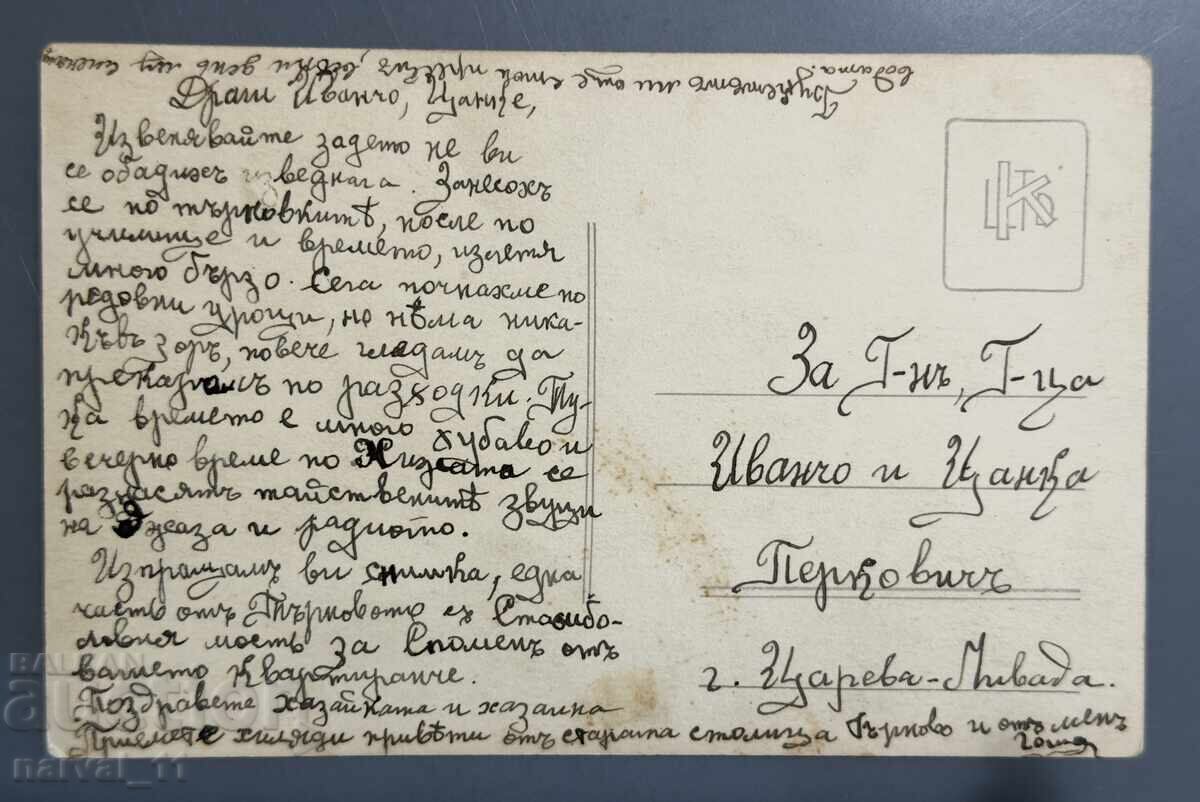 Драги Иванчо, Цанке,
Извенявайте задето не ви
се обадихъ изведнага. Занесохъ
се по търновкитѣ, после по
училище и времето, излетя
много бързо. Сега почнахме по
редовни уроци, но нѣма ника-
къвъ зоръ, повече гледамъ да
прекарамъ по разходки. Ту-
ка времето е много хубаво и
вечерно време по Хижата се
разнасятъ тайственитѣ звуци
на Джаза и радиото.
Изпращамъ ви снимка, една
часть отъ Търновото съ Стамбо-
ловия мость за Споменъ отъ
вашето квартиранче.
Поздравете хазайката и хазаина
Приемете хиляди привѣти отъ старата столица Търново и отъ менъ
Гошо
Букетътъ ми още стои прѣсенъ, всѣки день му сменямъ
водата.
За Г-нъ, Г-ца
Иванчо и Цанка
Перковичъ
г. Царева-Ливада.
BALKAN
auction
naival_11